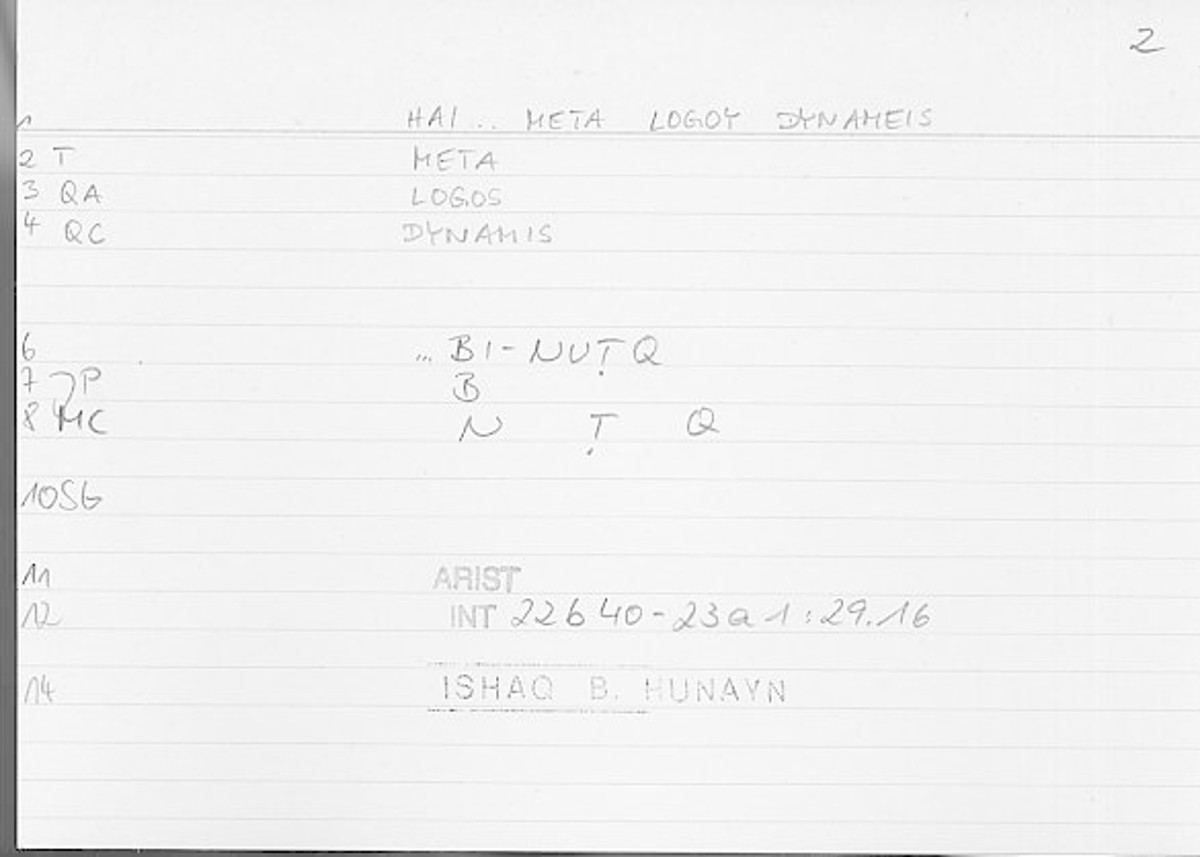 2
1 HAI .. META LOGOY DYNAMEIS
2 T META
3 QA LOGOS
4 QC DYNAMIS
6 ... BI-NUṬQ
7 P B
8 MC N Ṭ Q
10SG
11 ARIST
12 INT 22b40-23a1:29.16
14 ISHAQ B. HUNAYN